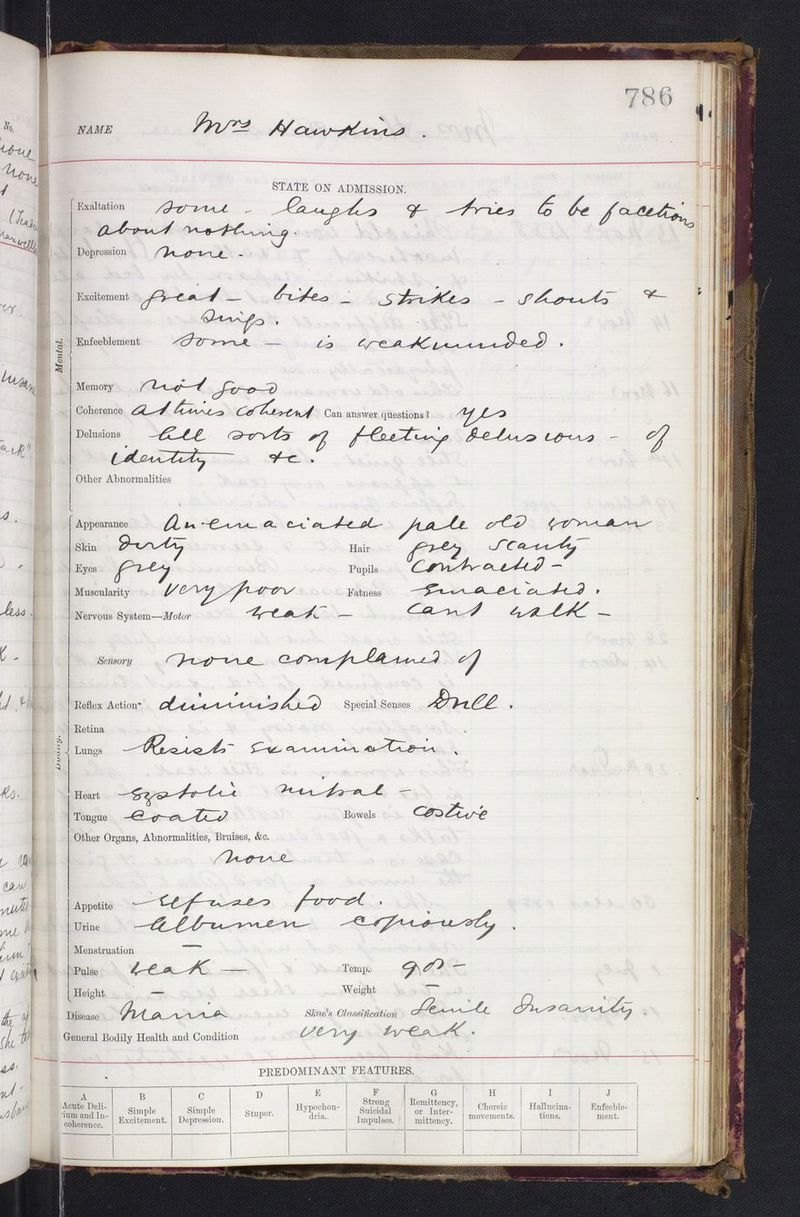 786
NAME Mrs Hawkins.
STATE ON ADMISSION.
Mental.
Exaltation some - laughs & tries to be facetious
about nothing.
Depression none.
Excitement great - bites - strikes - shouts &
sings.
Enfeeblement some - is weakminded.
Memory not good
Coherence at times coherent Can answer questions? yes
Delusions all sorts of fleeting delusions - of
identity &c.
Other Abnormalities
Bodily.
Appearance An emaciated pale old woman
Skin dirty Hair grey scanty
Eyes grey Pupils Contracted -
Muscularity very poor Fatness Emaciated.
Nervous System—Motor weak - cant walk -
Sensory none complained of
Reflex Action diminished Special Senses Dull.
Retina
Lungs Resists examination.
Heart Systolic mitral -
Tongue Coated Bowels Costive
Other Organs, Abnormalities, Bruises, &c.
none
Appetite refuses food.
Urine Albumen copiously.
Menstruation —
Pulse weak — Temp.
Height — Weight —
Disease Mania Skae's Classification Senile Insanity.
General Bodily Health and Condition very weak.
PREDOMINANT FEATURES.
A B C D E F G H I J
Acute Delirium and Incoherence. Simple Excitement. Simple Depression. Stupor. Hypochondria. Strong Suicidal Impulses. Remittency, or Intermittency. Choreic movements. Hallucinations. Enfeeblement.